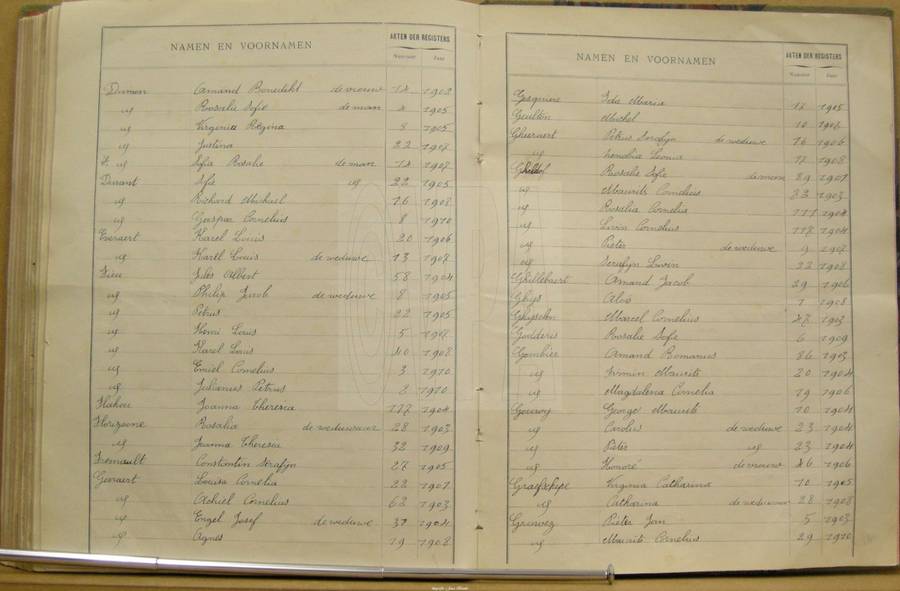 NAMEN EN VOORNAMEN AKTEN DER REGISTERS
Nummer Jaar
Dumon Amand Benedikt de vrouw 14 1902
id Rosalie Sofie de man 4 1905
id Virginia Regina 8 1905
id Justina 22 1907
id Sofia Rosalie de man 14 1907
Durant Sofie id 22 1905
id Richard Michael 16 1908
id Gaspar Cornelius 8 1910
Everaert Karel Louis 20 1906
id Karel Louis de weduwe 13 1908
Jules Albert 58 1904
id Philip Jacob de weduwe 8 1905
id Petrus 22 1905
id Henri Louis 5 1907
id Karel Louis 40 1908
id Emiel Cornelius 3 1910
id Julianus Petrus 2 1910
Joanna Theresia 117 1904
Rosalia de weduwnaar 28 1903
id Joanna Theresia 32 1909
Constantin Serafijn 27 1905
Gevaert Louisa Cornelia 22 1901
id Achiel Cornelius 62 1903
id Engel Josef de weduwe 37 1904
id Agnes 19 1908
NAMEN EN VOORNAMEN AKTEN DER REGISTERS
Nummer Jaar
Ida Maria 12 1905
Michel 10
Petrus Serafijn de weduwe 16 1906
id Leonia 17 1908
Rosalie Sofie de man 89 1901
id Maurits Cornelius 22 1903
id Rosalia Cornelia 111 1904
id Livin Cornelius 112 1904
id Pieter de weduwe 9 1907
id Serafijn Livin 22 1908
Ghillebaert Amand Jacob 29 1906
Ghijs Aloïs 1 1908
Marcel Cornelius 47 1903
Rosalie Sofie 6 1909
Amand Romanus 86 1903
id Irmin Maurits 20 1904
id Magdalena Cornelia 19 1906
George Maurits 10 1904
id Carolus de weduwe 23 1904
id Pieter id 23 1904
id Honoré de vrouw 46 1906
Virginia Catharina 10 1905
id Catharina de weduwnaar 28 1908
Pieter Jan 5 1903
id Maurits Cornelius 29 1910